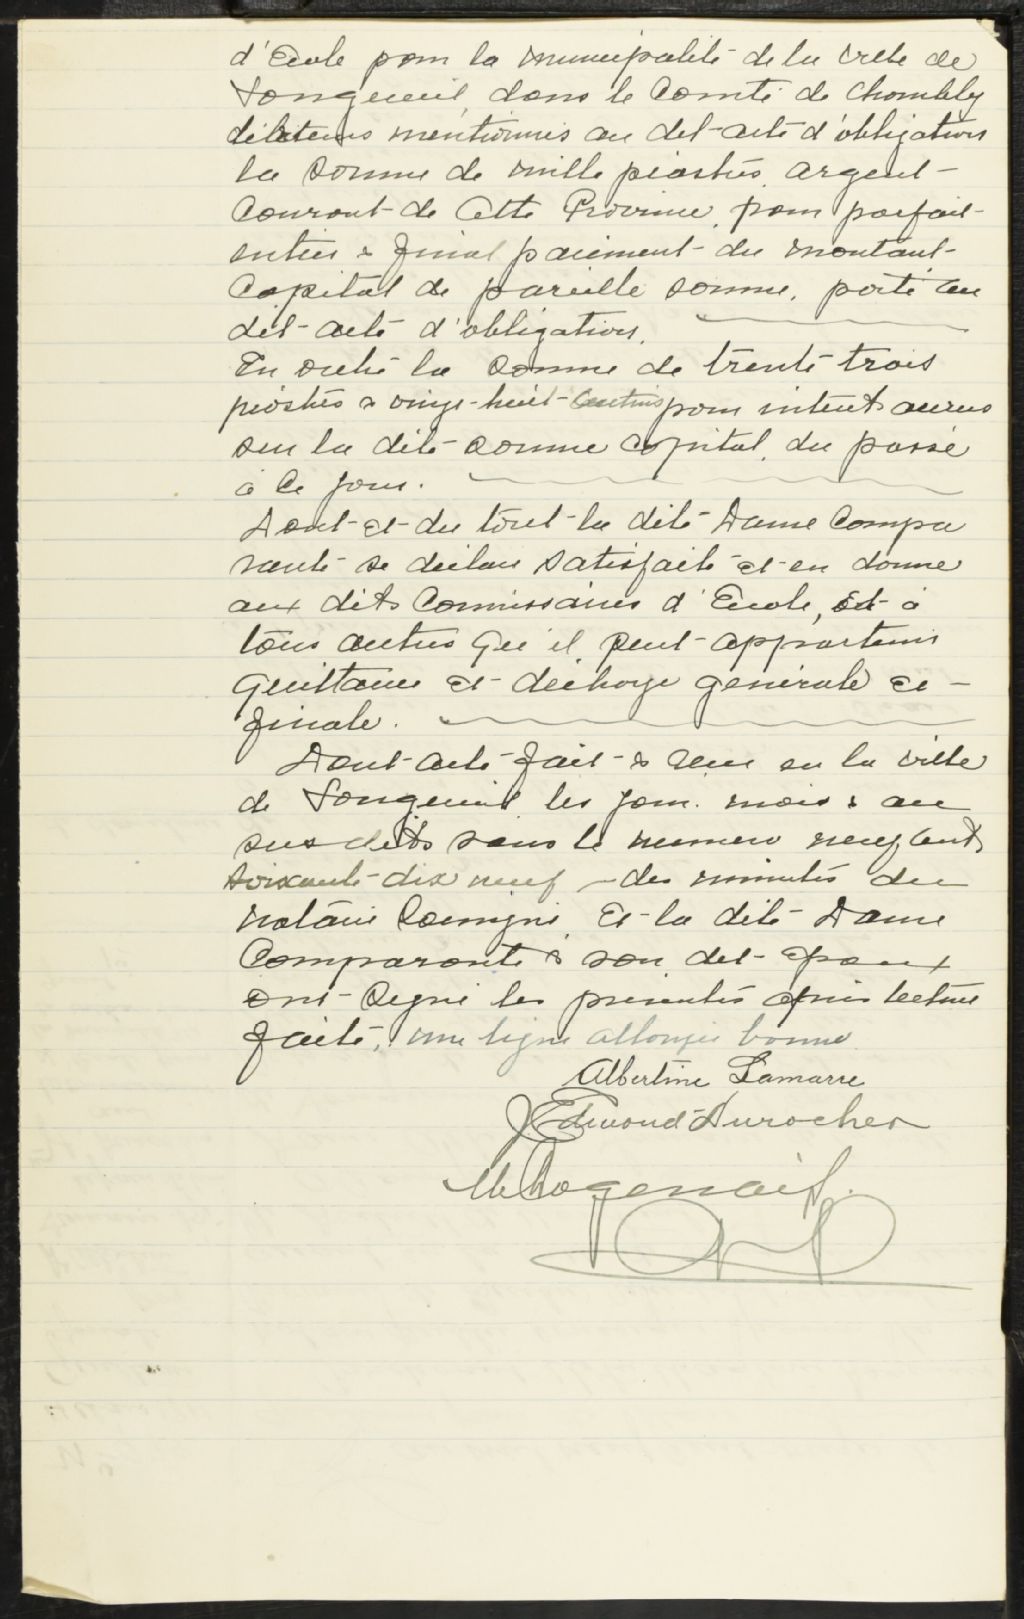 d'Ecole pour la municipalité de la ville de
Longueuil, dans le Comté de Chambly
débiteurs mentionnés au dit acte d'obligation
la somme de mille piastres, argent
Courant de Cette Province, pour parfait
entier & final paiement du montant
Capital de pareille somme, porté au
dit acte d'obligation.
En outre la somme de trente trois
piastres & vingt-huit Centins pour intérêts accrus
sur la dite somme Capital, du passé
à Ce jour.
Dont et du tout la dite Dame Compa
rante se déclare satisfaite et en donne
aux dits Commissaires d'Ecole, et à
tous autres qu'il peut appartenir
Quittance et décharge générale et
finale.
Dont Acte fait & à en la ville
de Longueuil les jour, mois & an
susdits sous le numero neuf cent
soixante-dix neuf des minutes du
notaire soussigné. Et la dite Dame
Comparante & son dit époux
ont signé les présentes après lecture
faite, une ligne allongée bonne
Albertine Lamarre
J Edmond Durocher